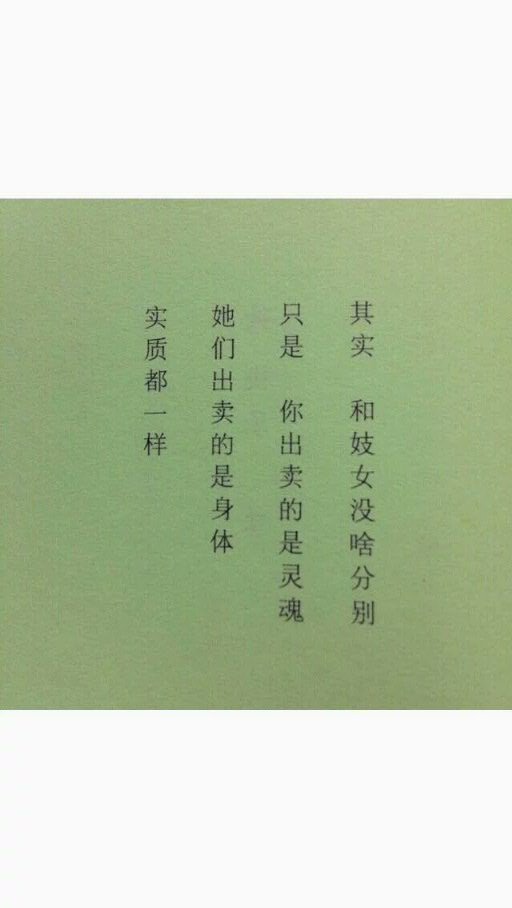 其实 和妓女没啥分别
只是 你出卖的是灵魂
她们出卖的是身体
实质都一样